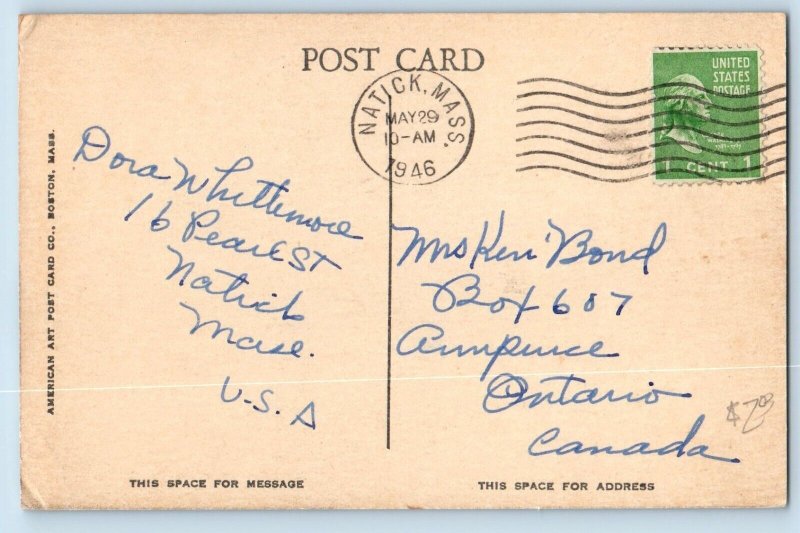 POST CARD
NATICK, MASS.
MAY 29
10-AM
1946
UNITED
STATES
POSTAGE
1 CENT 1
AMERICAN ART POST CARD CO., BOSTON, MASS.
Dora Whittemore
16 Pearl ST
Natick
Mass.
U.S.A
Mrs Ken Bond
Box 607
Ontario
Canada
THIS SPACE FOR MESSAGE
THIS SPACE FOR ADDRESS